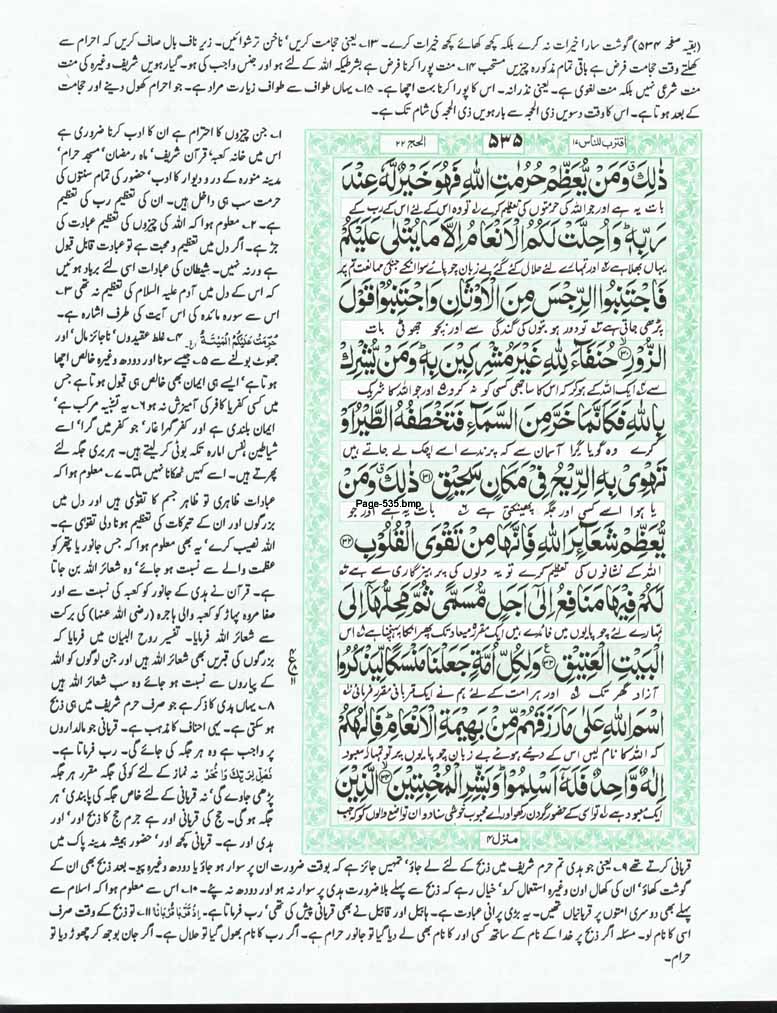 (بقیہ صفحہ ۵۳۴) گوشت سارا خیرات نہ کرے بلکہ کچھ کھائے کچھ خیرات کرے۔ ۱۳؎ یعنی حجامت کریں' ناخن ترشوائیں۔ زیر ناف بال صاف کریں کہ احرام سے
کھلتے وقت حجامت فرض ہے باقی تمام مذکورہ چیزیں مستحب ۱۴؎ منت پورا کرنا فرض ہے بشرطیکہ اللہ کے لئے ہو اور جنس واجب کی ہو۔ گیارہویں شریف وغیرہ کی منت
منت شرعی نہیں بلکہ منت لغوی ہے۔ یعنی نذرانہ۔ اس کا پورا کرنا بہت اچھا ہے۔ ۱۵؎ یہاں طواف سے طواف زیارت مراد ہے۔ جو احرام کھول دینے اور حجامت
کے بعد ہوتا ہے۔ اس کا وقت دسویں ذی الحجہ سے بارہویں ذی الحجہ کی شام تک ہے۔
اقترب للناس ۱۷
۵۳۵
الحج ۲۲
ذٰلِكَ وَمَنْ يُّعَظِّمْ حُرُمٰتِ اللّٰهِ فَهُوَ خَيْرٌ لَّهٗ عِنْدَ
بات یہ ہے اور جو اللہ کی حرمتوں کی تعظیم کرے تو وہ اس کے لئے اس کے رب کے
رَبِّهٖ وَاُحِلَّتْ لَكُمُ الْاَنْعَامُ اِلَّا مَا يُتْلٰى عَلَيْكُمْ
یہاں بھلا ہے اور تمہارے لئے حلال کئے گئے بے زبان چوپائے سوا انکے جنکی ممانعت تم پر
فَاجْتَنِبُوا الرِّجْسَ مِنَ الْاَوْثَانِ وَاجْتَنِبُوْا قَوْلَ
پڑھی جاتی ہے تو دور ہو بتوں کی گندگی سے اور بچو جھوٹی بات
الزُّوْرِ ۳۰ حُنَفَآءَ لِلّٰهِ غَيْرَ مُشْرِكِيْنَ بِهٖ وَمَنْ يُّشْرِكْ
سے ایک اللہ کے ہو کر کہ اس کا ساجھی کسی کو نہ کرو اور جو اللہ کا شریک
بِاللّٰهِ فَكَاَنَّمَا خَرَّ مِنَ السَّمَآءِ فَتَخْطَفُهُ الطَّيْرُ اَوْ
کرے وہ گویا گرا آسمان سے کہ پرندے اسے اچک لے جاتے ہیں
تَهْوِيْ بِهِ الرِّيْحُ فِيْ مَكَانٍ سَحِيْقٍ ۳۱ ذٰلِكَ وَمَنْ
یا ہوا اسے کسی اور جگہ پھینکتی ہے بات یہ ہے اور جو
Page-535.bmp
يُّعَظِّمْ شَعَآئِرَ اللّٰهِ فَاِنَّهَا مِنْ تَقْوَى الْقُلُوْبِ ۳۲
اللہ کے نشانوں کی تعظیم کرے تو یہ دلوں کی پرہیزگاری سے ہے
لَكُمْ فِيْهَا مَنَافِعُ اِلٰٓى اَجَلٍ مُّسَمًّى ثُمَّ مَحِلُّهَآ اِلَى
تمہارے لئے چوپایوں میں فائدے ہیں ایک مقررہ میعاد تک پھر انکا پہنچنا ہے اس
الْبَيْتِ الْعَتِيْقِ ۳۳ وَلِكُلِّ اُمَّةٍ جَعَلْنَا مَنْسَكًا لِّيَذْكُرُوا
آزاد گھر تک اور ہر امت کے لئے ہم نے ایک قربانی مقرر فرمائی
اسْمَ اللّٰهِ عَلٰى مَا رَزَقَهُمْ مِّنْۢ بَهِيْمَةِ الْاَنْعَامِ فَاِلٰهُكُمْ
کہ اللہ کا نام لیں اس کے دیئے ہوئے بے زبان چوپایوں پر تو تمہارا معبود
اِلٰهٌ وَّاحِدٌ فَلَهٗٓ اَسْلِمُوْا وَبَشِّرِ الْمُخْبِتِيْنَ ۳۴ الَّذِيْنَ
ایک معبود ہے تو اسی کے حضور گردن رکھو اور اے محبوب خوشی سنادو ان تواضع والوں کو کہ جب
منزل ۴
۱؎ جن چیزوں کا احترام ہے ان کا ادب کرنا ضروری ہے
اس میں خانہ کعبہ' قرآن شریف' ماہ رمضان' مسجد حرام'
مدینہ منورہ کے در و دیوار کا ادب' حضور کی تمام سنتوں کی
حرمت سب ہی داخل ہیں۔ ان کی تعظیم رب کی تعظیم
ہے۔ ۲؎ معلوم ہوا کہ اللہ کی چیزوں کی تعظیم عبادت کی
جڑ ہے۔ اگر دل میں تعظیم و محبت ہے تو عبادت قابل قبول
ہے ورنہ نہیں۔ شیطان کی عبادات اسی لئے برباد ہوئیں
کہ اس کے دل میں آدم علیہ السلام کی تعظیم نہ تھی ۳؎
اس سے سورہ مائدہ کی اس آیت کی طرف اشارہ ہے۔
حُرِّمَتْ عَلَيْكُمُ الْمَيْتَةُ الخ ۴؎ غلط عقیدوں' ناجائز مال' اور
جھوٹ بولنے سے ۵؎ جیسے سونا اور دودھ وغیرہ خالص اچھا
ہوتا ہے' ایسے ہی ایمان بھی خالص ہی قبول ہوتا ہے جس
میں کسی کفر یا کافر کی آمیزش نہ ہو ۶؎ یہ تشبیہ مرکب ہے'
ایمان بلندی ہے اور کفر گہرا غار' جو کفر میں گرا' اسے
شیاطین نفس امارہ تکہ بوٹی کر لیتے ہیں۔ ہر بری جگہ لئے
پھرتے ہیں۔ اسے کہیں ٹھکانا نہیں ملتا۔ ۷؎ معلوم ہوا کہ
عبادات ظاہری تو ظاہر جسم کا تقویٰ ہیں اور دل میں
بزرگوں اور ان کے تبرکات کی تعظیم ہونا دلی تقویٰ ہے۔
اللہ نصیب کرے' یہ بھی معلوم ہوا کہ جس جانور یا پتھر کو
عظمت والے سے نسبت ہو جائے' وہ شعائر اللہ بن جاتا
ہے۔ قرآن نے ہدی کے جانور کو کعبہ کی نسبت سے اور
صفا مروہ پہاڑ کو کعبہ والی ہاجرہ (رضی اللہ عنہا) کی برکت
سے شعائر اللہ فرمایا۔ تفسیر روح البیان میں فرمایا کہ
بزرگوں کی قبریں بھی شعائر اللہ ہیں اور جن لوگوں کو اللہ
کے پیاروں سے نسبت ہو جائے وہ سب شعائر اللہ ہیں
۸؎ یہاں ہدی کا ذکر ہے جو صرف حرم شریف میں ہی ذبح
ہو سکتی ہے۔ یہی احناف کا مذہب ہے۔ قربانی جو مالداروں
پر واجب ہے وہ ہر جگہ کی جائے گی۔ رب فرماتا ہے۔
فَصَلِّ لِرَبِّكَ وَانْحَرْ نہ نماز کے لئے کوئی جگہ مقرر ہر جگہ
پڑھی جاوے گی' نہ قربانی کے لئے خاص جگہ کی پابندی' ہر
جگہ ہوگی۔ حج کی قربانی اور ہے جرم حج کا ذبح اور' اور
ہدی اور ہے۔ قربانی کچھ اور' حضور ہمیشہ مدینہ پاک میں
قربانی کرتے تھے ۹؎ یعنی جو ہدی تم حرم شریف میں ذبح کے لئے لے جاؤ' تمہیں جائز ہے کہ بوقت ضرورت ان پر سوار ہو جاؤ یا دودھ وغیرہ پیو۔ بعد ذبح بھی ان کے
گوشت کھاؤ' ان کی کھال اون وغیرہ استعمال کرو' خیال رہے کہ ذبح سے پہلے بلاضرورت ہدی پر سوار نہ ہو اور دودھ نہ پئے۔ ۱۰؎ اس سے معلوم ہوا کہ اسلام سے
پہلے بھی دوسری امتوں پر قربانیاں تھیں۔ یہ بڑی پرانی عبادت ہے۔ ہابیل اور قابیل نے بھی قربانی پیش کی تھی' رب فرماتا ہے۔ اِذْ قَرَّبَا قُرْبَانًا ۱۱؎ تو ذبح کے وقت صرف
اسی کا نام لو۔ مسئلہ اگر ذبح پر خدا کے نام کے ساتھ کسی اور کا نام بھی لے دیا گیا تو جانور حرام ہے۔ اگر رب کا نام بھول گیا تو حلال ہے۔ اگر جان بوجھ کر چھوڑ دیا تو
حرام۔